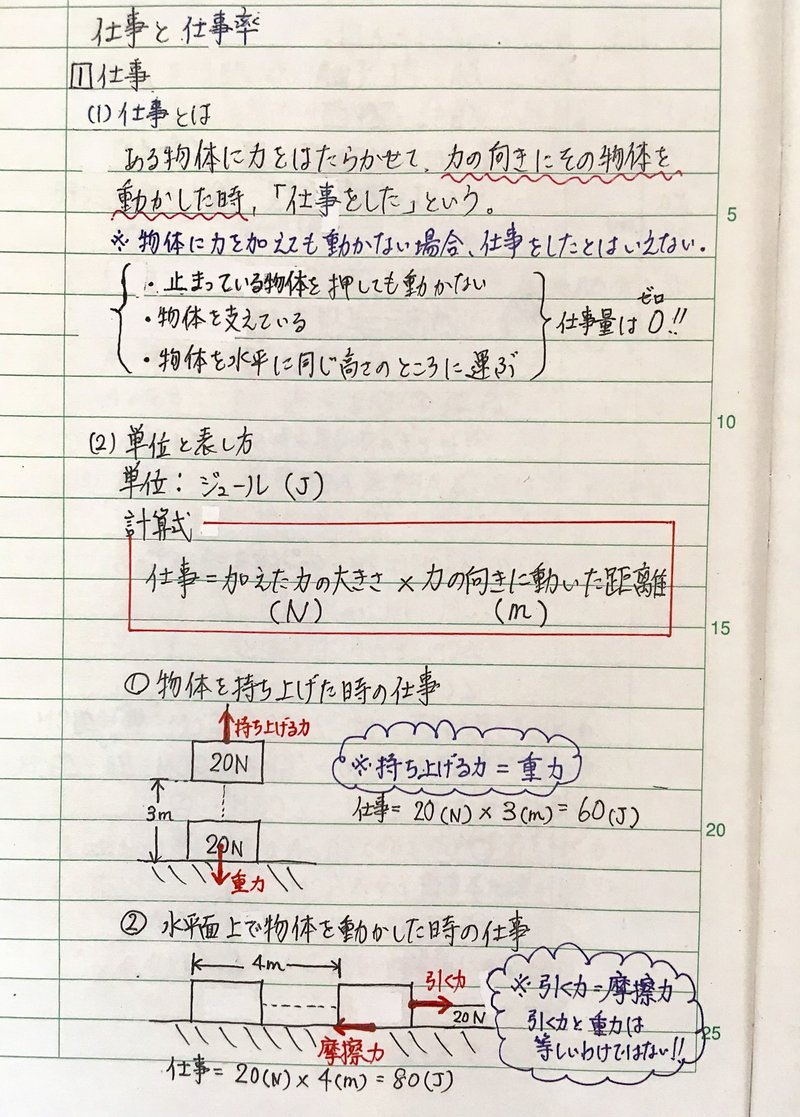 仕事と仕事率
1 仕事
(1) 仕事とは
ある物体に力をはたらかせて、力の向きにその物体を
動かした時、「仕事をした」という。
※ 物体に力を加えても動かない場合、仕事をしたとはいえない。
・止まっている物体を押しても動かない
・物体を支えている
・物体を水平に同じ高さのところに運ぶ
ゼロ
仕事量は0!!
(2) 単位と表し方
単位: ジュール (J)
計算式
仕事=加えた力の大きさ×力の向きに動いた距離
(N) (m)
① 物体を持ち上げた時の仕事
持ち上げる力
20N
3m
20N
重力
※持ち上げる力=重力
仕事= 20(N)×3(m)=60(J)
② 水平面上で物体を動かした時の仕事
4m
引く力
20N
摩擦力
※引く力=摩擦力
引く力と重力は
等しいわけではない!!
仕事= 20(N)×4(m)=80(J)
5
10
15
20
25